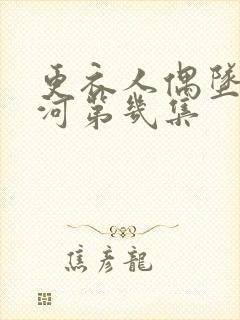 更衣人偶墜
河第幾集
焦彦龍